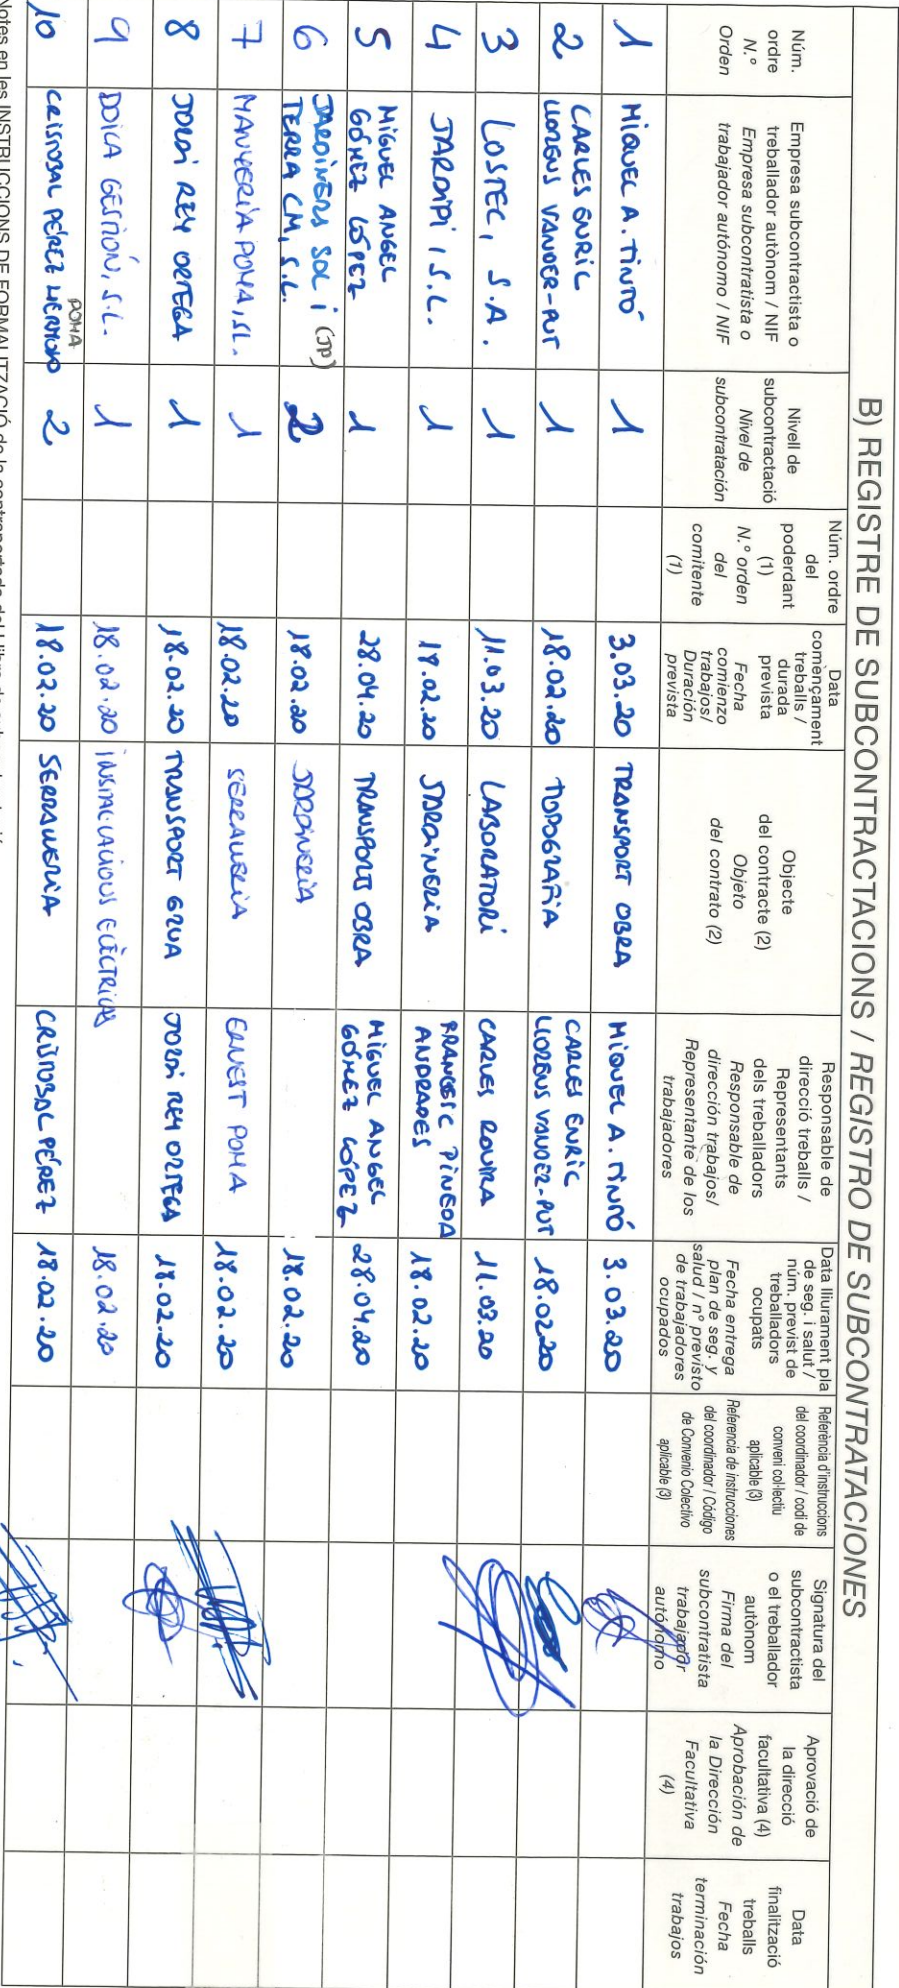 B) REGISTRE DE SUBCONTRACTACIONS / REGISTRO DE SUBCONTRATACIONES
Núm.
ordre
N.º
Orden
Empresa subcontractista o
treballador autònom / NIF
Empresa subcontratista o
trabajador autónomo / NIF
Nivell de
subcontractació
Nivel de
subcontratación
Núm. ordre
del
poderdant
(1)
N.º orden
del
comitente
(1)
Data
començament
treballs /
durada
prevista
Fecha
comienzo
trabajos/
Duración
prevista
Objecte
del contracte (2)
Objeto
del contrato (2)
Responsable de
direcció treballs /
Representants
dels treballadors
Responsable de
dirección trabajos/
Representante de los
trabajadores
Data lliurament pla
de seg. i salut /
núm. previst de
treballadors
ocupats
Fecha entrega
plan de seg. y
salud / nº previsto
de trabajadores
ocupados
Referència d'instruccions
del coordinador / codi de
conveni col·lectiu
aplicable (3)
Referencia de instrucciones
del coordinador / Código
de Convenio Colectivo
aplicable (3)
Signatura del
subcontractista
o el treballador
autònom
Firma del
subcontratista
trabajador
autónomo
Aprovació de
la direcció
facultativa (4)
Aprobación de
la Dirección
Facultativa
(4)
Data
finalització
treballs
Fecha
terminación
trabajos
1 MIQUEL A. TINTÓ 1 3.03.20 TRANSPORT OBRA MIQUEL A. TINTÓ 3.03.20
2 CARLES ENRIC
LLORENS VANDER-PUT 1 18.02.20 TOPOGRAFIA CARLES ENRIC
LLORENS VANDER-PUT 18.02.20
3 LOSTEC, S.A. 1 11.03.20 LABORATORI CARLES ROVIRA 11.03.20
4 JARDIPI, S.L. 1 18.02.20 JARDINERIA FRANCESC PINEDA
ANDRADES 18.02.20
5 MIGUEL ANGEL
GÓMEZ LÓPEZ 1 28.04.20 TRANSPORT OBRA MIGUEL ANGEL
GÓMEZ LÓPEZ 28.04.20
6 JARDINERS SOL I (JP)
TERRA CM, S.L. 2 18.02.20 JARDINERIA 18.02.20
7 MANYERIA POMA, SL. 1 18.02.20 SERRALLERIA ERNEST POMA 18.02.20
8 JORDI REY ORTEGA 1 18.02.20 TRANSPORT GRUA JORDI REY ORTEGA 18.02.20
9 DOICA GESTIÓN, S.L. 1 18.02.20 INSTAL·LACIONS ELÈCTRICAS 18.02.20
POMA
10 CRISTOBAL PÉREZ HERMOSO 2 18.02.20 SERRALLERIA CRISTOBAL PÉREZ 18.02.20